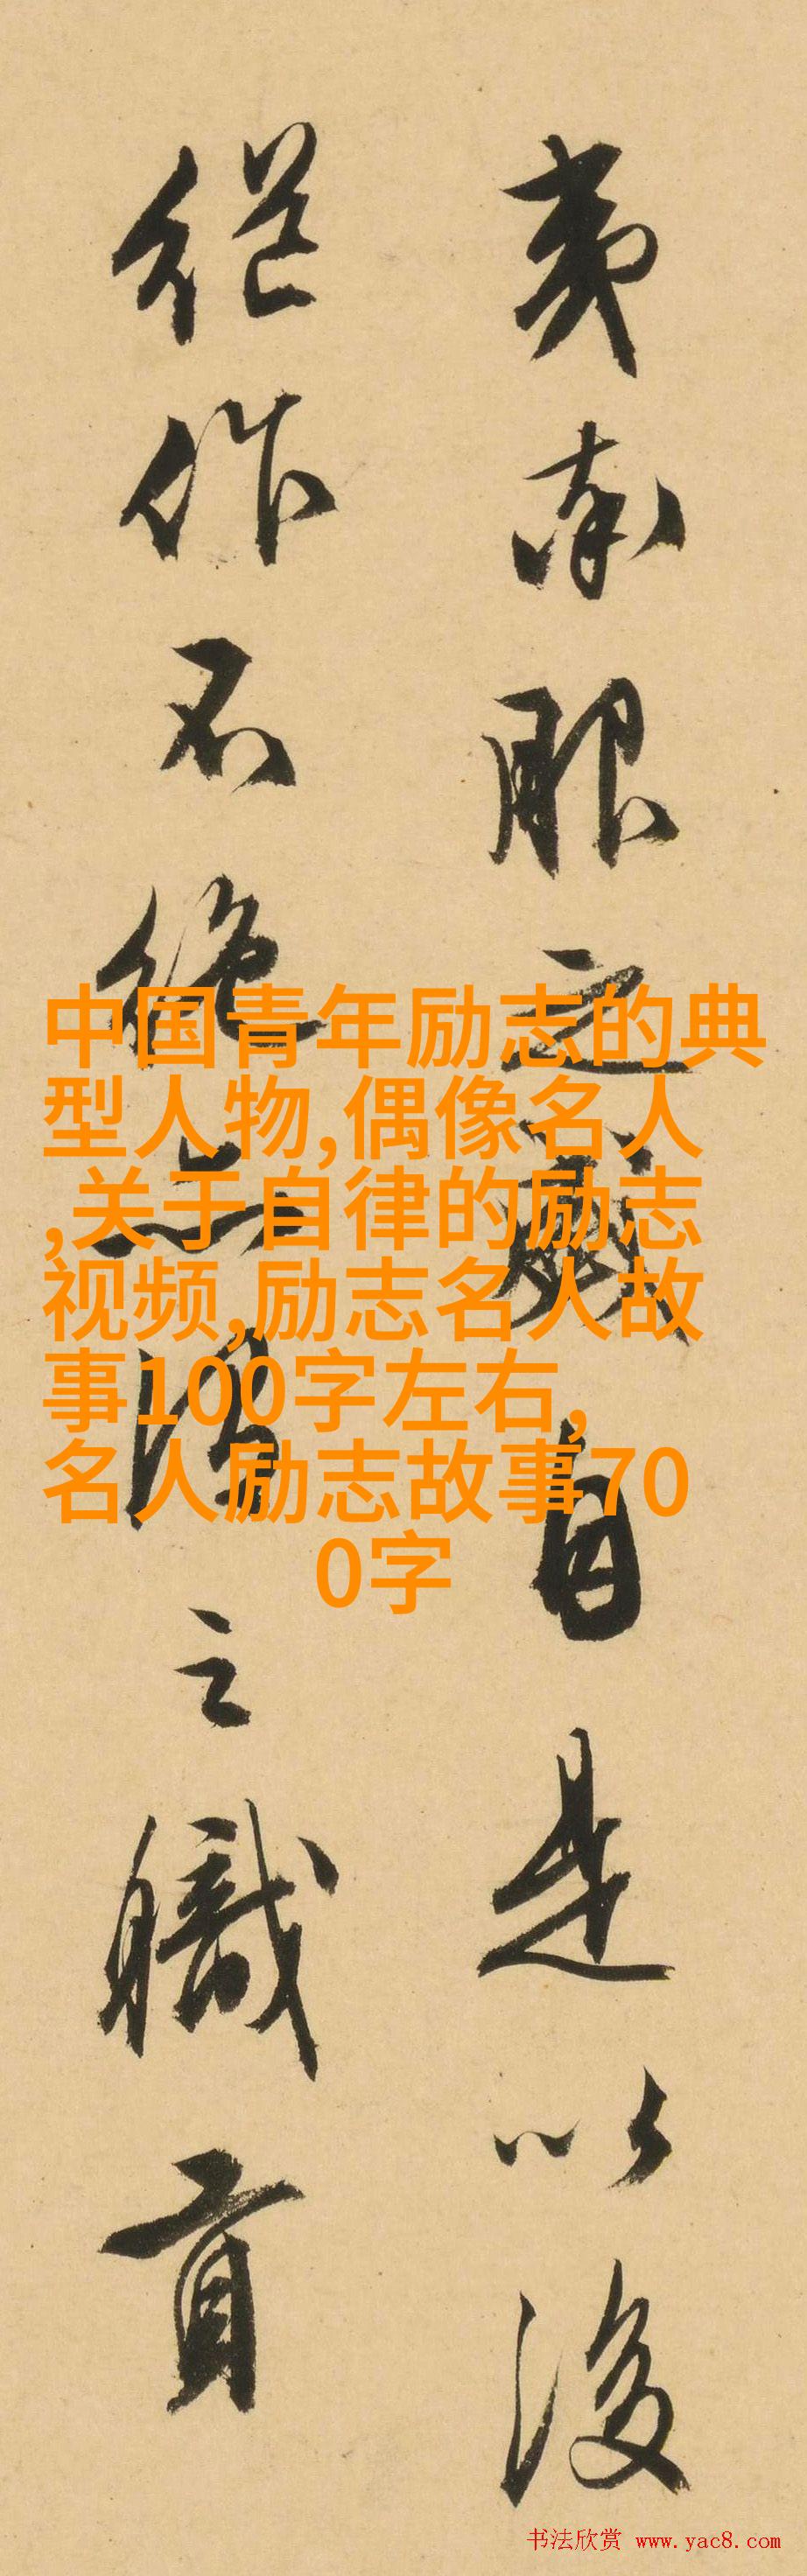 夷南服之自是以後
继作不絶之職貢
中国青年励志的典
型人物,偶像名人
,关于自律的励志
视频,励志名人故
事100字左右,
名人励志故事70
0字
书法欣赏 www.yac8.com